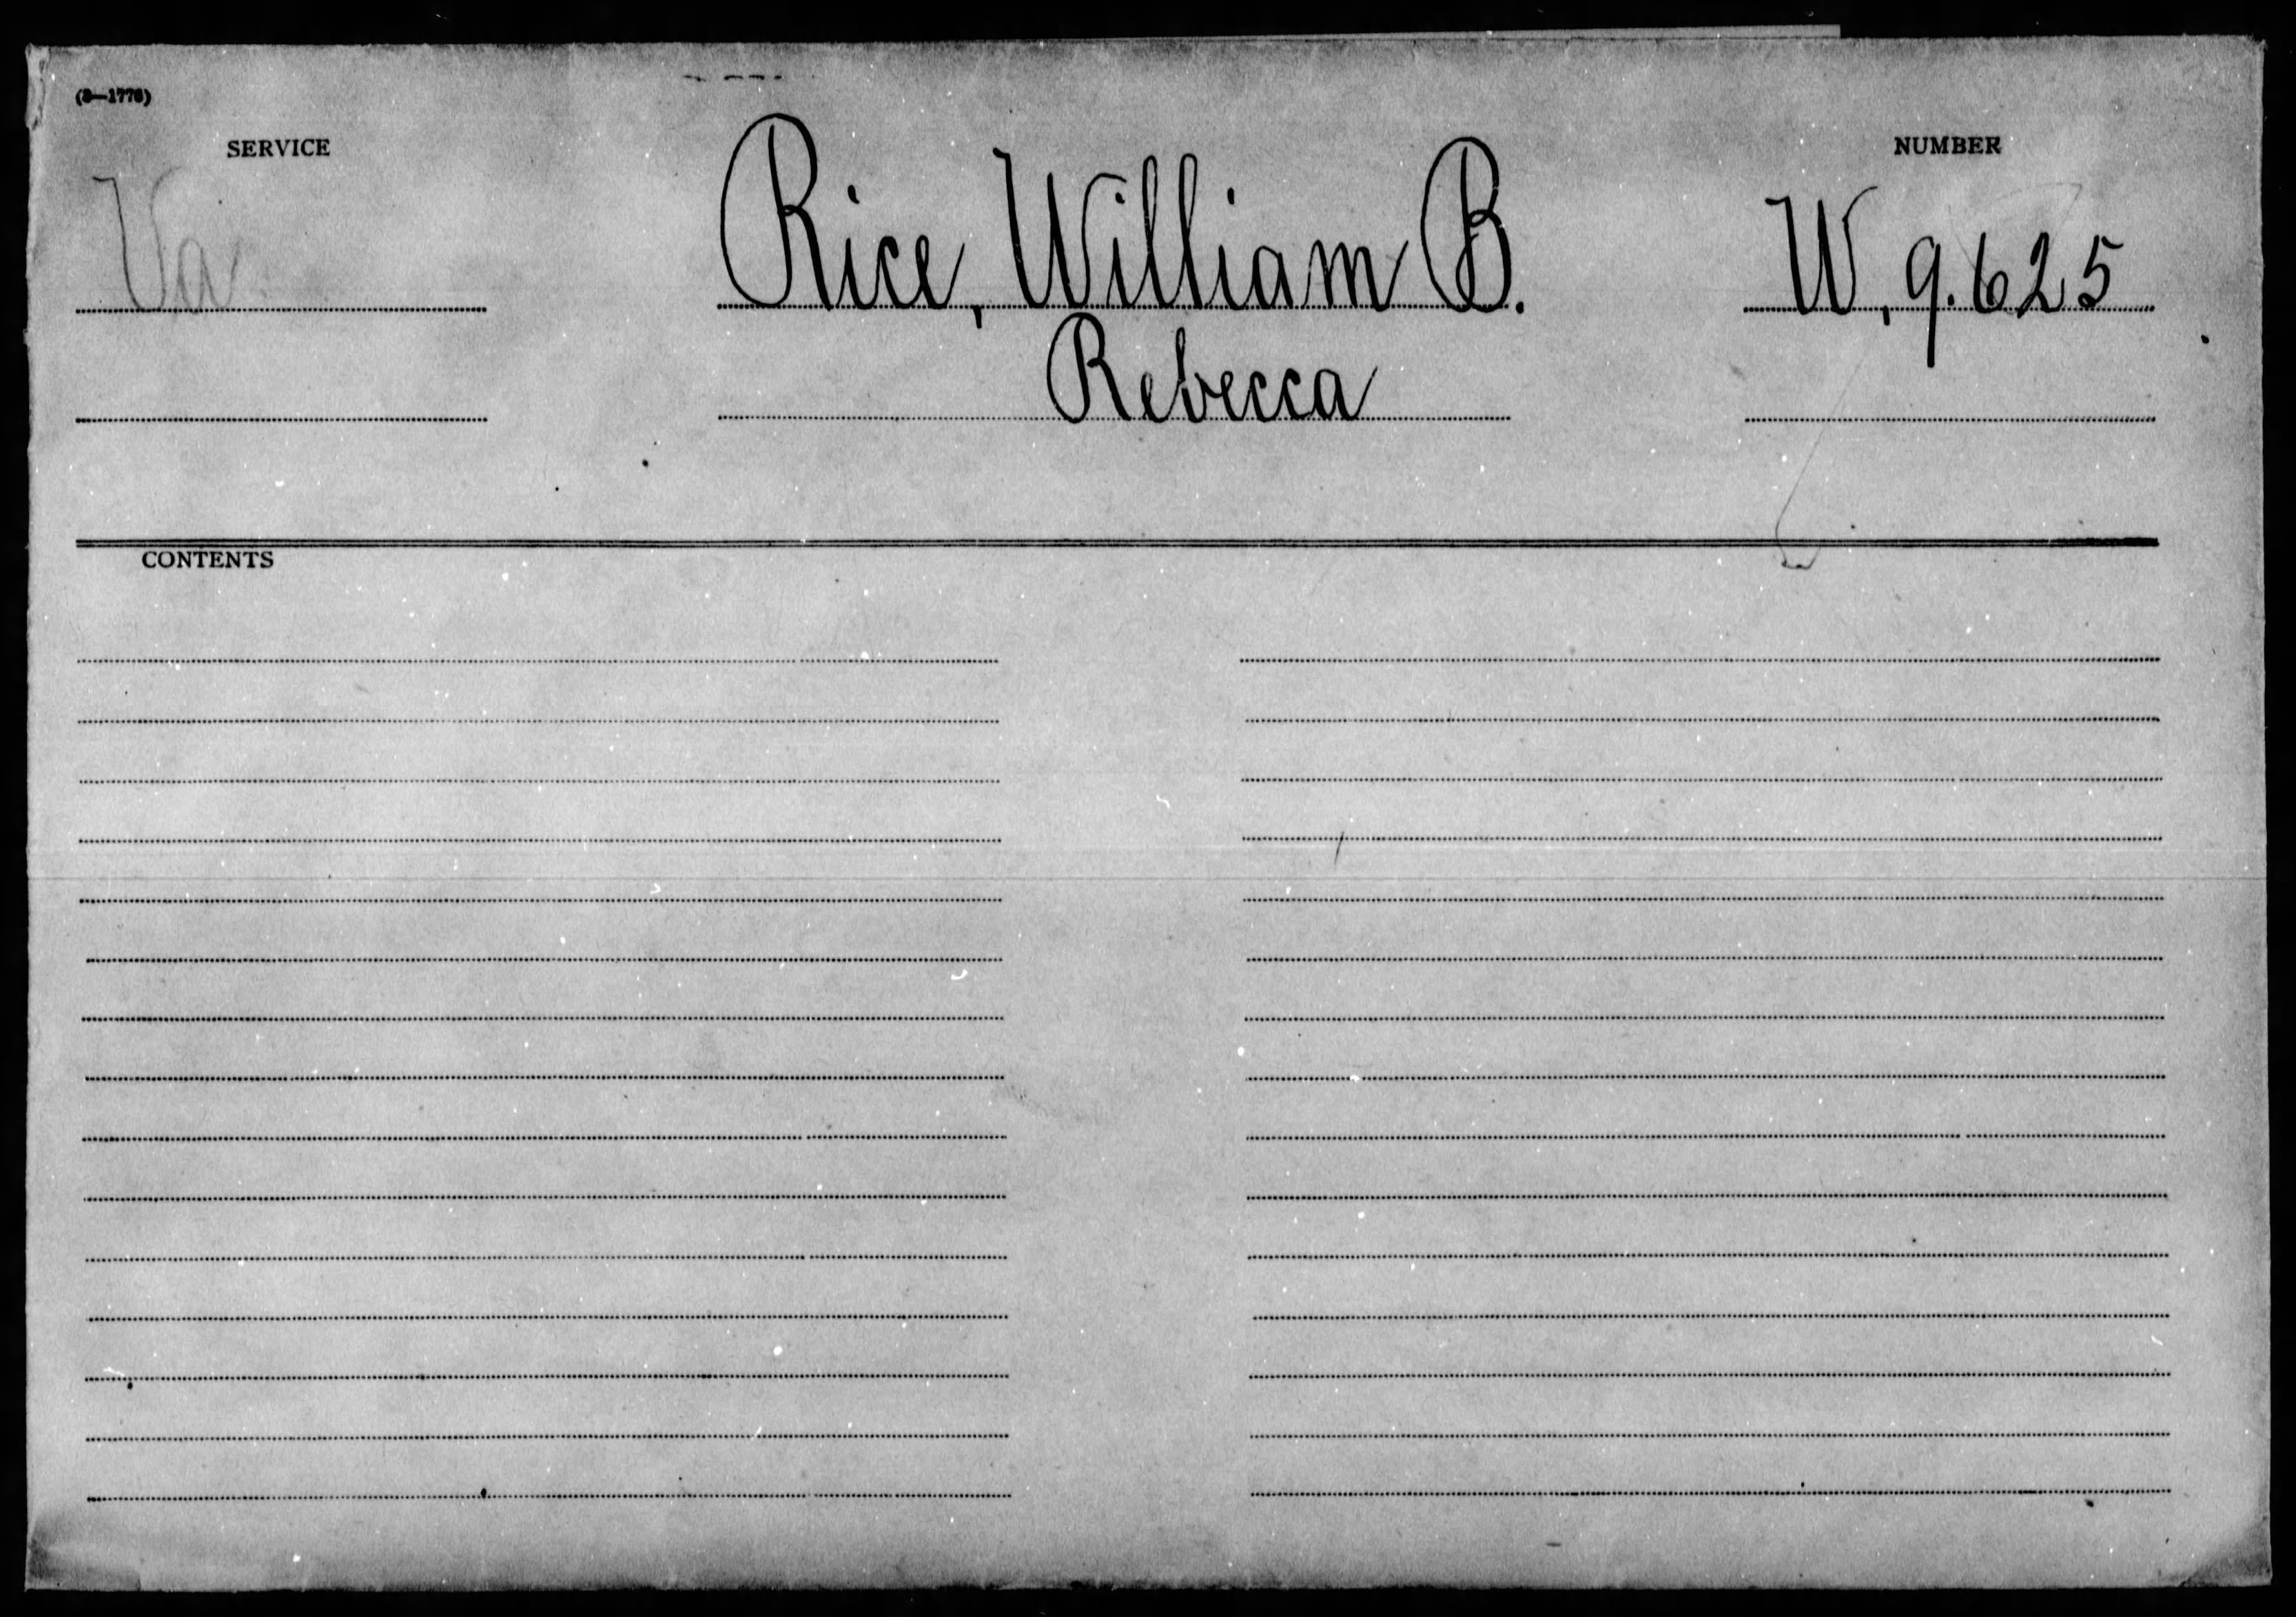 (3—1776)
SERVICE
NUMBER
Va
Rice, William B.
W. 9.625
Rebecca
CONTENTS